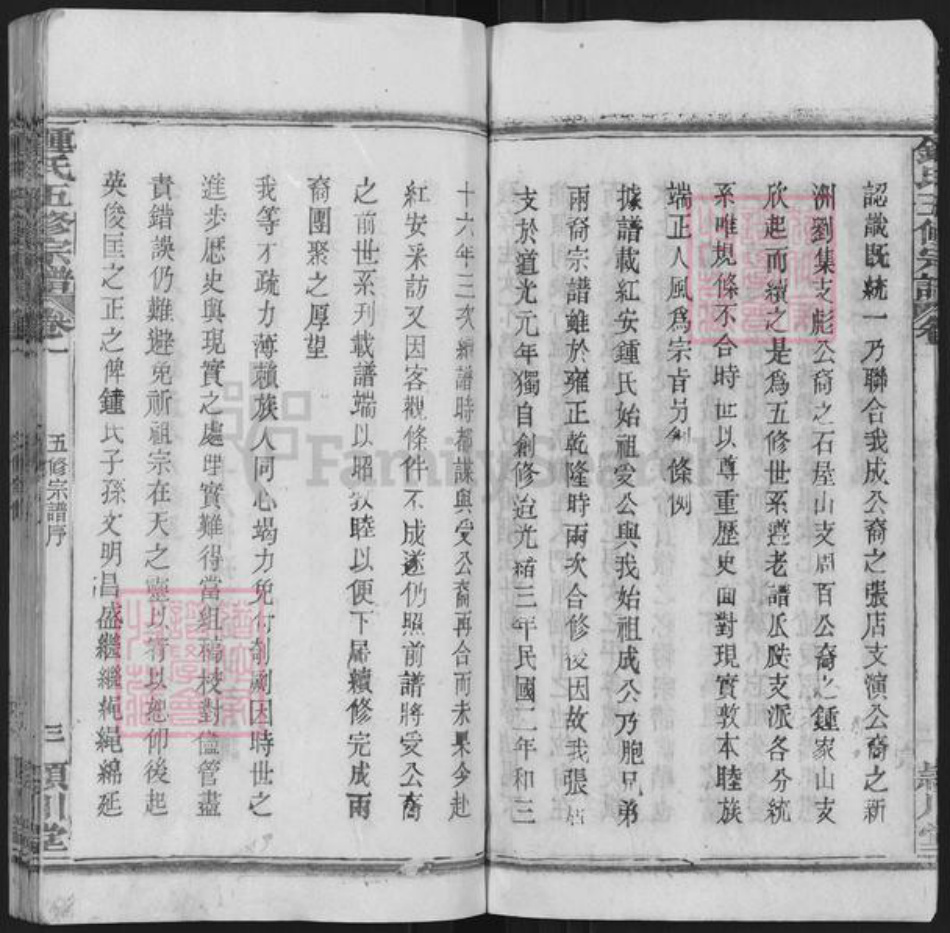 認識既統一乃聯合我成公裔之張店支演公裔之新
洲劉集支彪公裔之石屋山支周百公裔之鍾家山支
欣起而續之是爲五修世系遵老譜瓜瓞支派各分統
系唯規條不合時世以尊重歷史面對現實敦本睦族
端正人風爲宗旨另創條例
據譜載紅安鍾氏始祖受公與我始祖成公乃胞兄弟
兩裔宗譜雖於雍正乾隆時兩次合修後因故我張店
支於道光元年獨自創修迨光緒三年民國二年和三
十六年三次續譜時都謀與受公裔再合而未果今赴
紅安采訪又因客觀條件不成遂仍照前譜將受公裔
之前世系刊載譜端以昭敦睦以便下屆續修完成兩
裔團聚之厚望
我等才疏力薄賴族人同心竭力免付剞劂因時世之
進步歷史與現實之處理實難得當組稿校對儘管盡
責錯誤仍難避免祈祖宗在天之靈以宥以恕仰後起
英俊匡之正之俾鍾氏子孫文明昌盛繼繼繩繩綿延
鍾氏五修宗譜 卷一
五修宗譜序
三
潁川堂
FamilySearch